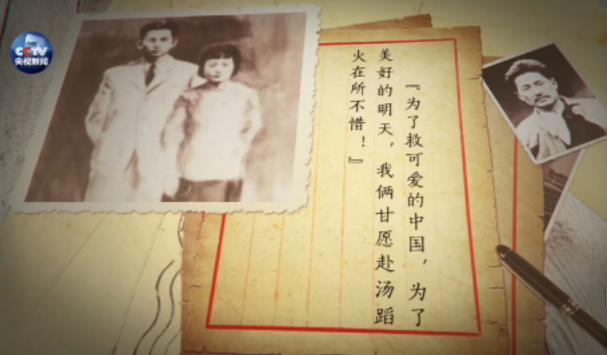 CCTV
央视新闻
『为了救可爱的中国，为了
美好的明天，我俩甘愿赴汤蹈
火在所不惜！』